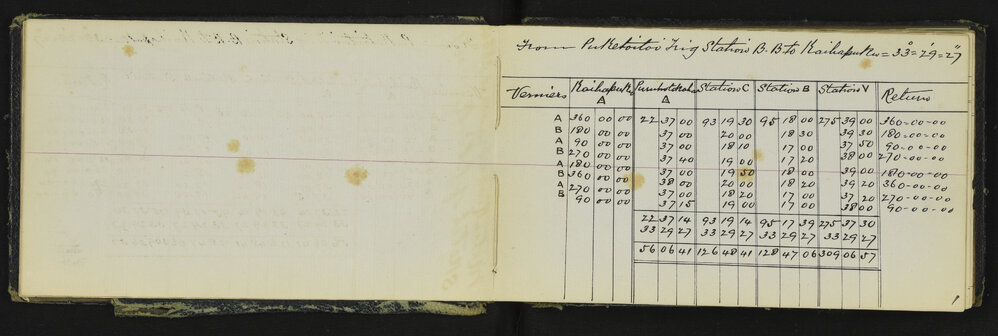 From Puketoitoi Trig Station B. B to Kaihapuku = 33° = 29' = 27"
Verniers Kaihapuku △ △ Station C Station B Station V Return
A 360 00 00 22 37 00 93 19 30 95 18 00 275 39 00 360=00=00
B 180 00 00 37 00 20 00 18 30 39 30 180=00=00
A 90 00 00 37 00 18 10 17 00 37 50 90=00=00
B 270 00 00 37 40 19 00 17 20 38 00 270=00=00
A 180 00 00 37 00 19 50 18 20 39 00 180=00=00
B 360 00 00 38 00 20 00 18 20 39 20 360=00=00
A 270 00 00 37 00 18 20 17 00 37 20 270=00=00
B 90 00 00 37 15 19 00 17 00 38 00 90=00=00
22 37 14 93 19 14 95 17 39 275 37 30
33 29 27 33 29 27 33 29 27 33 29 27
56 06 41 126 48 41 128 47 06 309 06 57